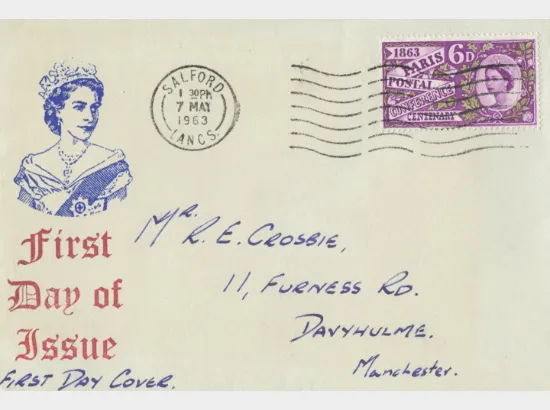 SALFORD
1 30PM
7 MAY
1963
LANCS.
1863
6D
PARIS
POSTAL
CONFERENCE
CENTENARY
First
Day of
Issue
FIRST DAY COVER.
Mr. R. E. CROSBIE,
11, FURNESS RD.
DAVYHULME.
Manchester.